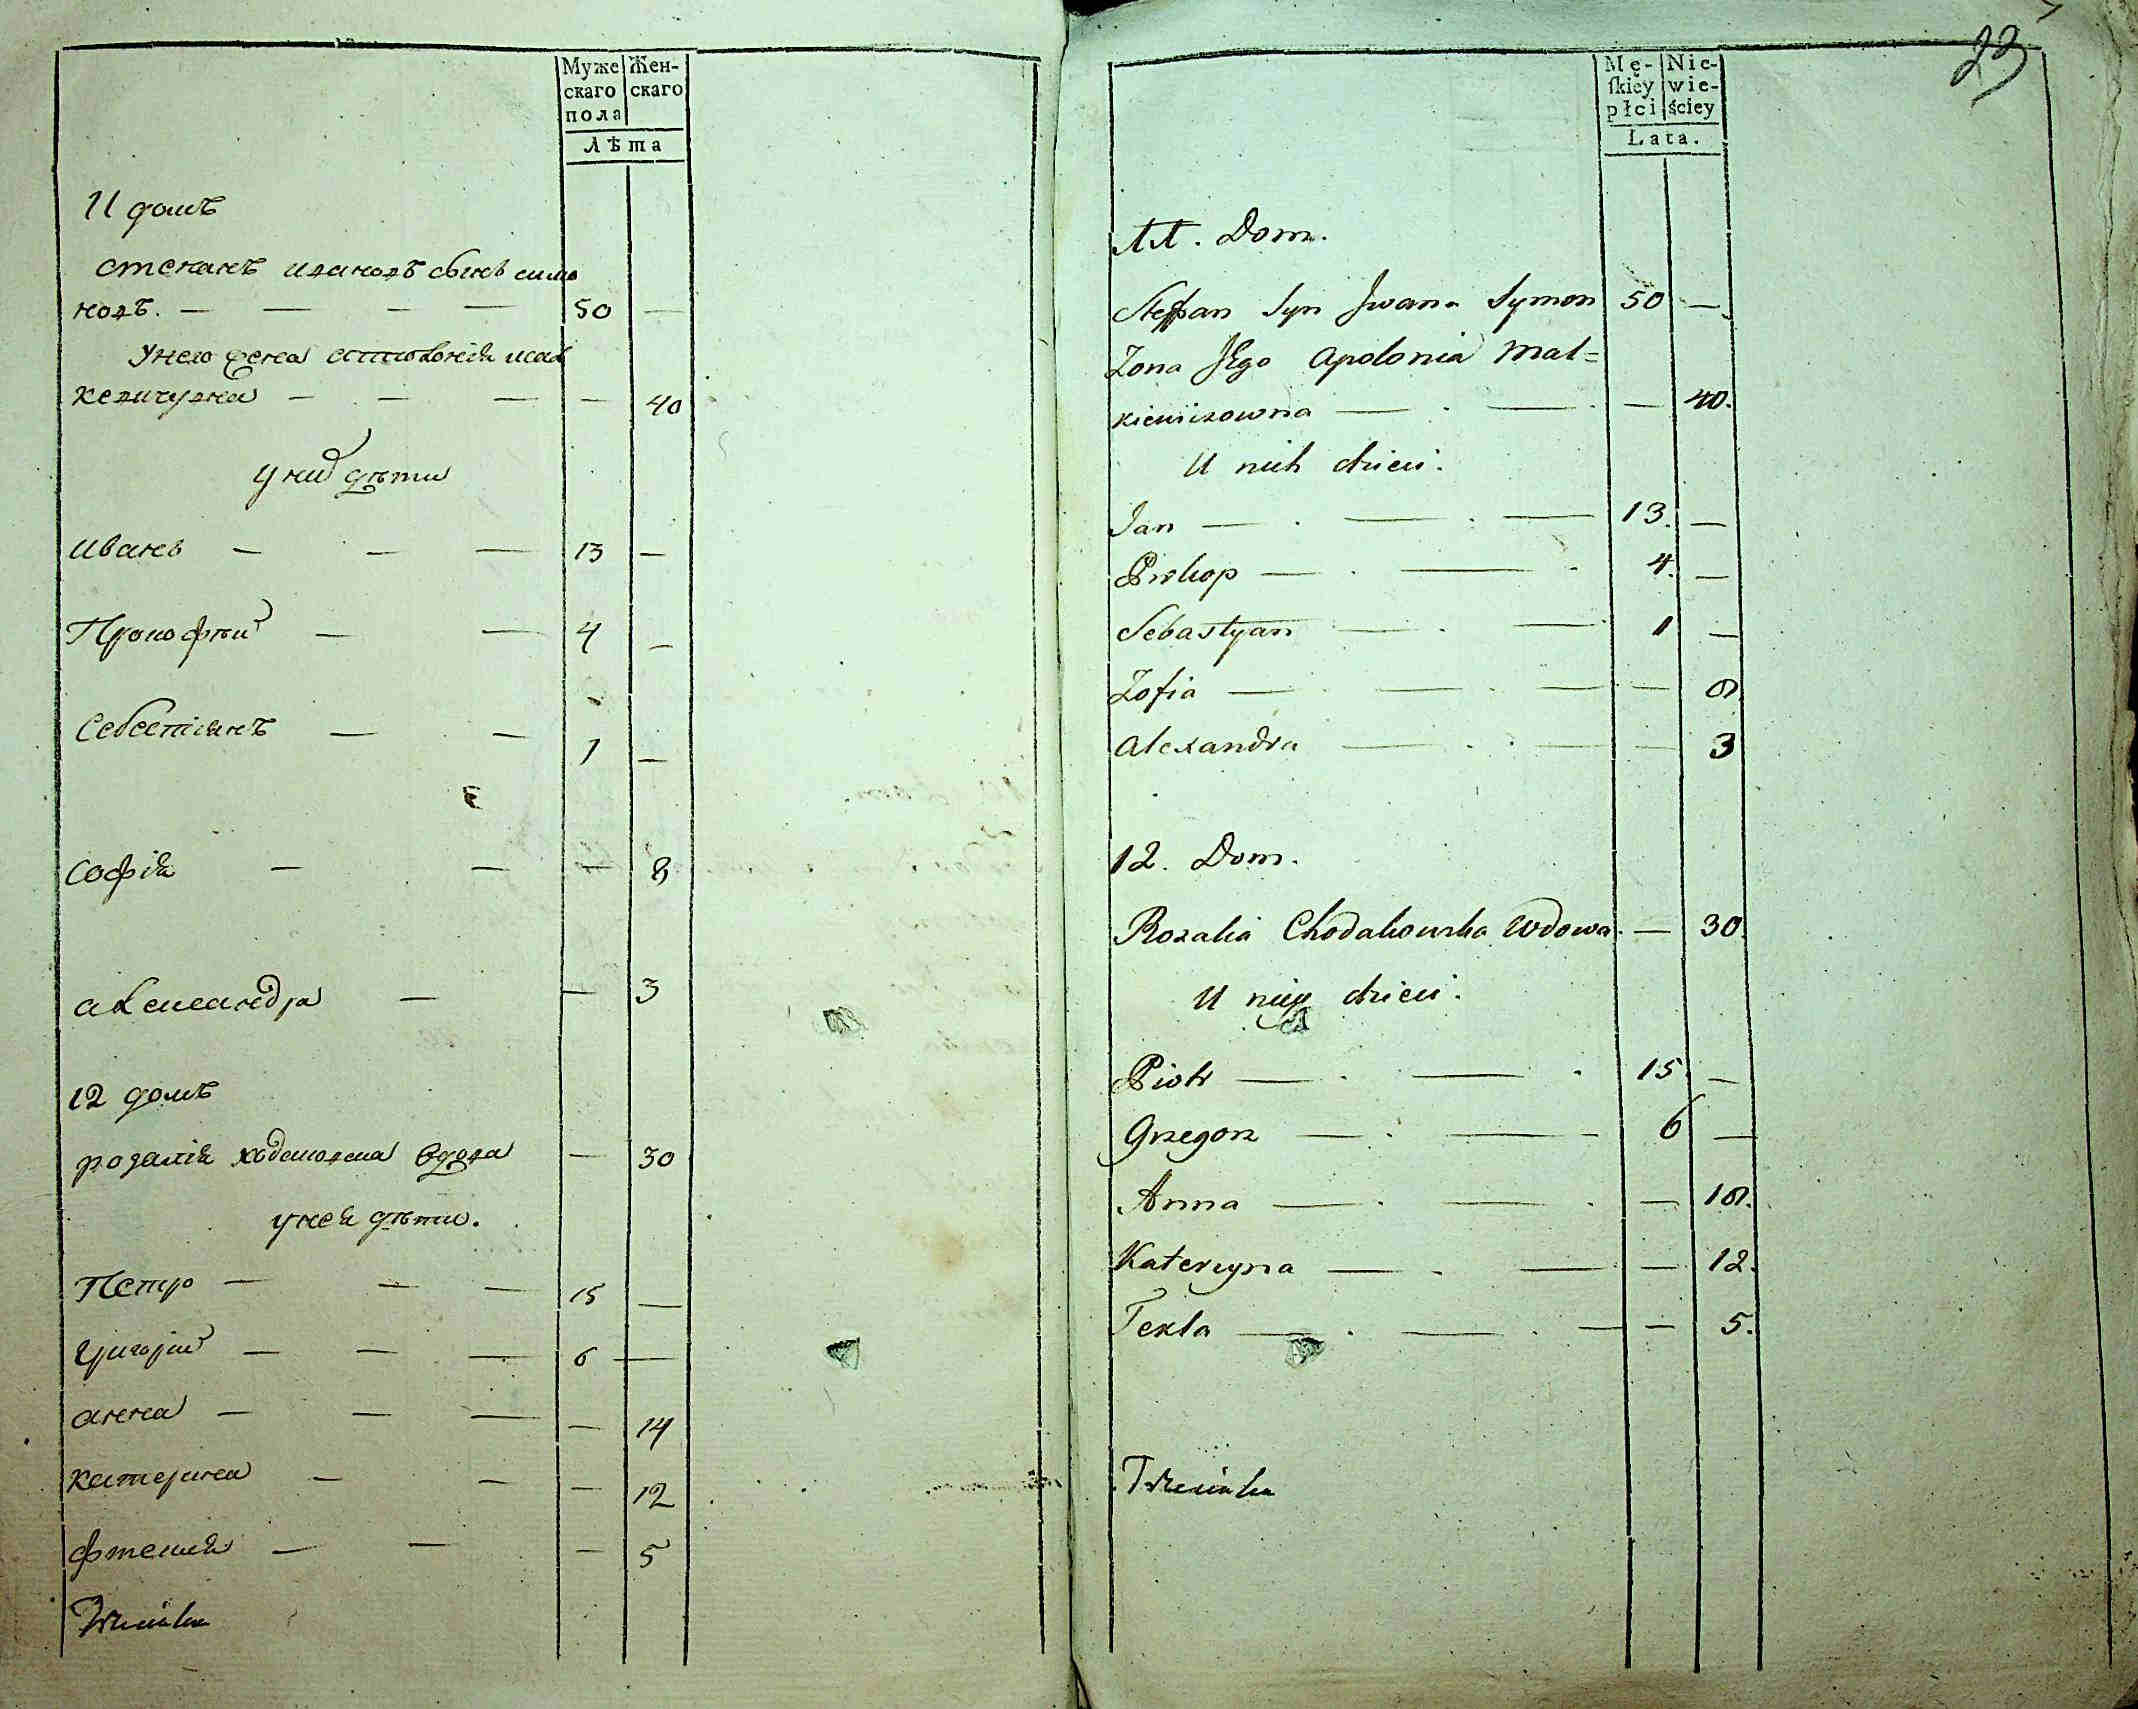 Муже
скаго
пола
Жен-
скаго
Лѣта
11 домъ
степанъ ивановъ сынъ симо
новъ. — — — — 50 —
унего жена
кевичувна — — — — 40
уних дѣти
иванъ — — — 13 —
Прокофѣй — — 4 —
Себестіянъ — — 1 —
софія — — — 8
александра — — 3
12 домъ
розалія вдова — 30
унея дѣти.
Петро — — — 15 —
григорій — — — 6 —
анна — — — — 14
катерина — — — 12
— — — 5
23
Mę-
ſkiey
płci
Nie-
wie-
ściey
Lata.
11. Dom.
Steffan Syn Jwana Symon 50 —
Zona Jego Apolonia Mal=
kiewiczowna — — — 40.
U nich dzieci.
Jan — — — 13. —
Prokop — — 4. —
Sebastyan — — 1 —
Zofia — — — — 8
Alexandra — — — 3
12. Dom.
Rozalia Chodakowska Wdowa. — 30.
U niey dzieci.
Piotr — — 15. —
Grzegorz — — 6 —
Anna — — — 14.
Katerzyna — — — 12.
Tekla — — — — 5.